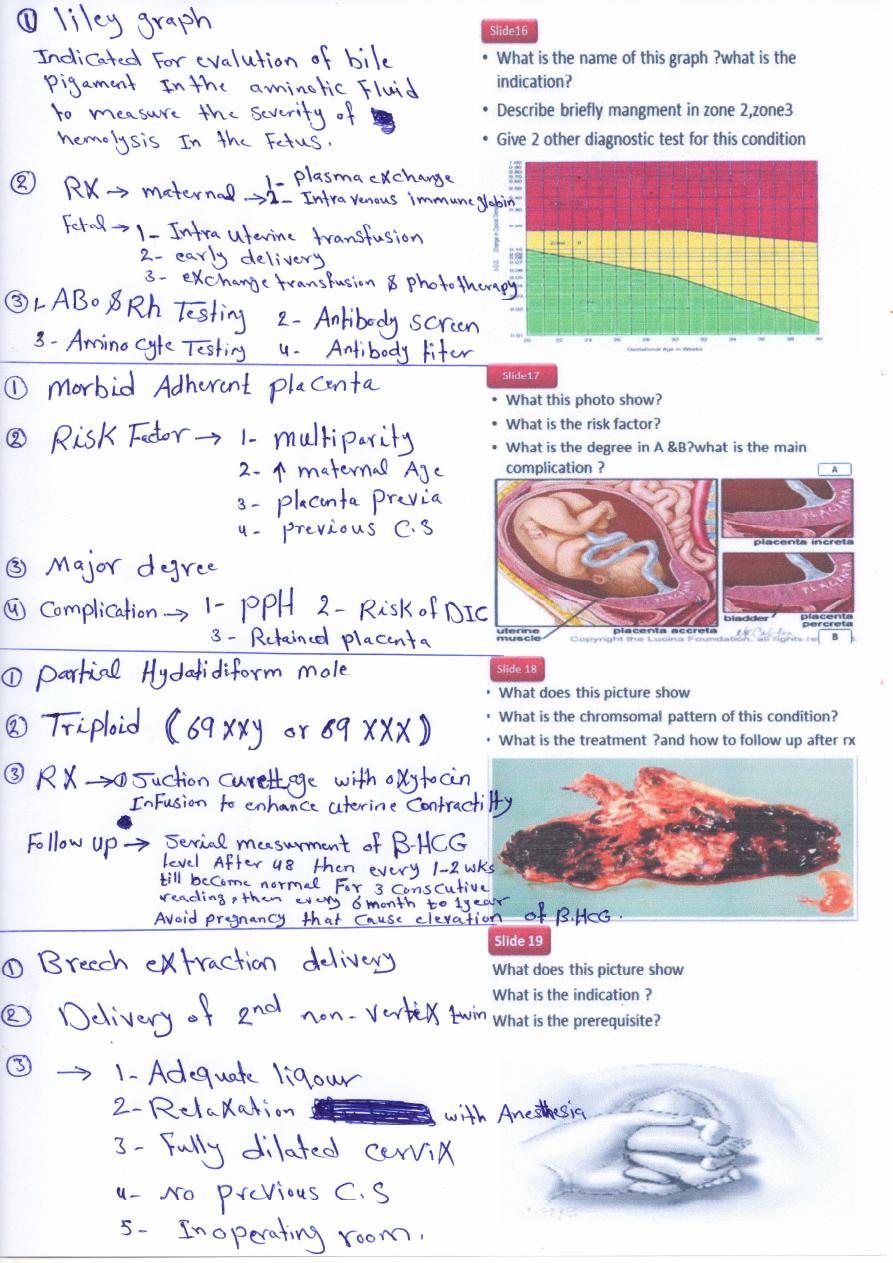 ① liley graph
Indicated For evalution of bile
pigament In the aminotic Fluid
to measure the severity of
hemolysis In the Fetus.
② RX → maternal → 1- plasma exchange
2- Intra venous immuneglobin
Fetal → 1- Intra uterine transfusion
2- early delivery
3- exchange transfusion & phototherapy
③ 1- ABo & Rh Testing 2- Antibody screen
3- Amino cyte Testing 4- Antibody titer
Slide16
• What is the name of this graph ?what is the
indication?
• Describe briefly mangment in zone 2,zone3
• Give 2 other diagnostic test for this condition
1.00
20 22 24 26 28 30 32 34 36 38 40
Gestational Age in Weeks
① Morbid Adherent placenta
② Risk Factor → 1- multiparity
2- ↑ maternal Age
3- placenta previa
4- previous C.S
③ Major degree
④ Complication → 1- PPH 2- Risk of DIC
3- Retained placenta
Slide17
• What this photo show?
• What is the risk factor?
• What is the degree in A &B?what is the main
complication ?
A
PLACENTA
placenta increta
PLACENTA
bladder
placenta
percreta
uterine
muscle
placenta accreta
Copyright the Lucina Foundation, all rights
B
① partial Hydatidiform mole
② Triploid (69 XXY or 69 XXX)
③ RX → ① Suction curettage with oxytocin
InFusion to enhance uterine Contractilty
Follow up → Serial measurment of B-HCG
level After 48 then every 1-2 wks
till become normal For 3 conscutive
reading, then every 6 month to 1 year
Avoid pregnancy that cause elevation of B-HCG.
Slide 18
• What does this picture show
• What is the chromsomal pattern of this condition?
• What is the treatment ?and how to follow up after rx
① Breech extraction delivery
② Delivery of 2nd non-vertex twin
③ → 1- Adequate liqour
2- Relaxation with Anesthesia
3- Fully dilated cervix
4- No previous C.S
5- In operating room.
Slide 19
What does this picture show
What is the indication ?
What is the prerequisite?